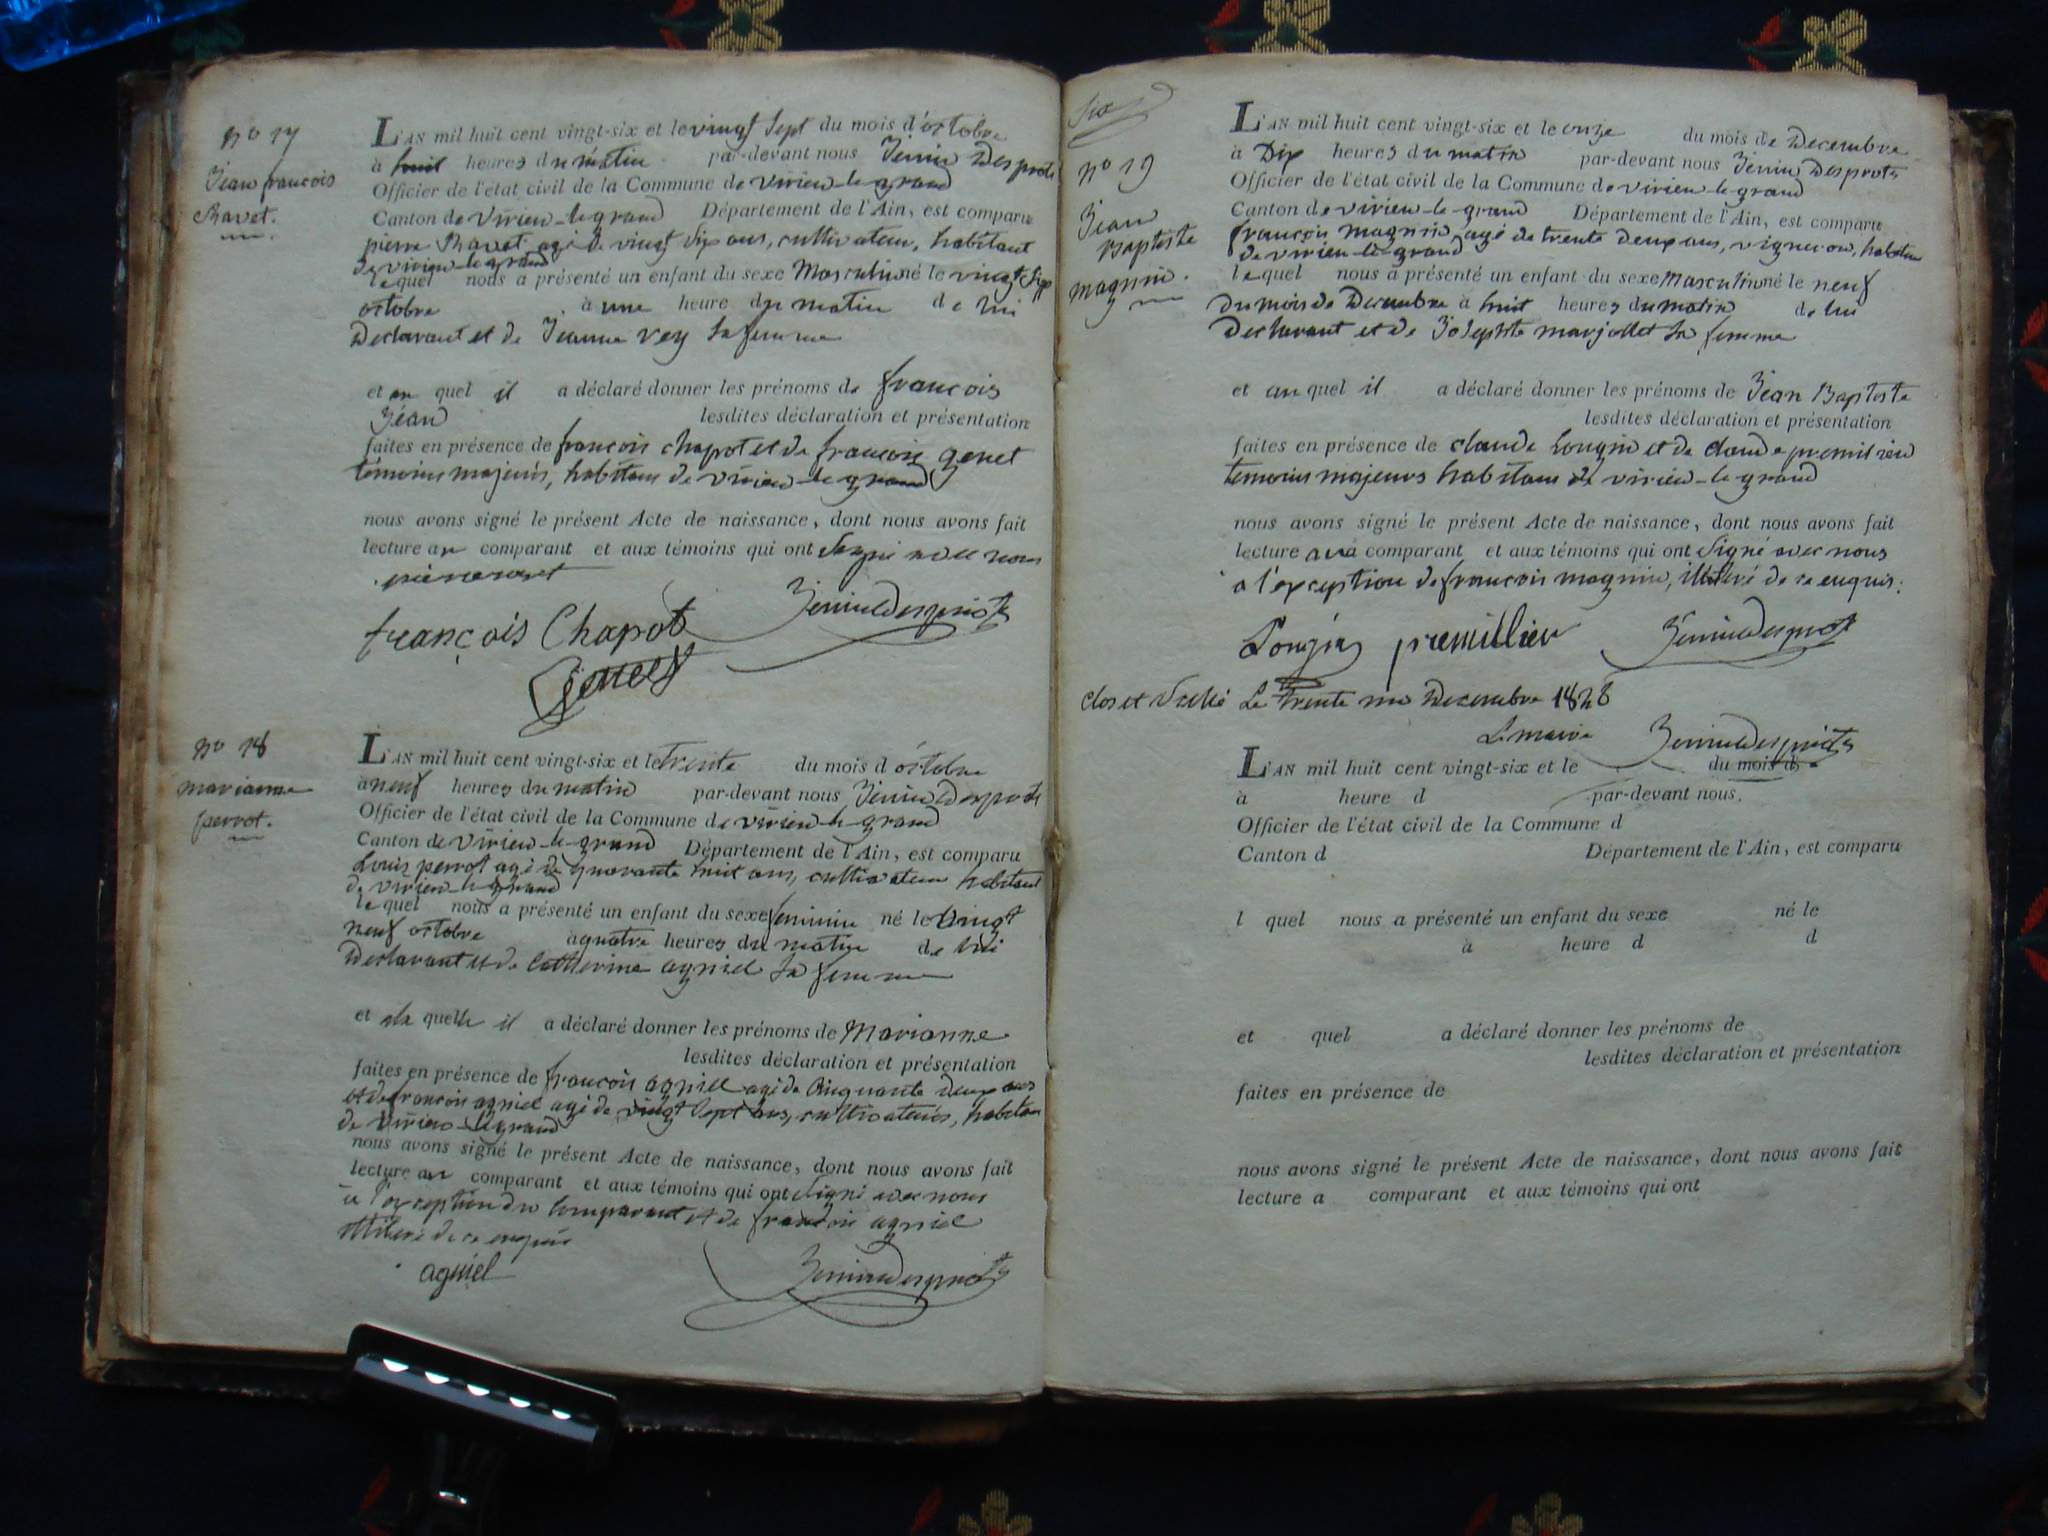 nº 17
Jean françois
Ravet.
L'AN mil huit cent vingt-six et le vingt sept du mois d'octobre
à huit heures du matin par-devant nous Jenin Desprots
Officier de l'état civil de la Commune de virieu-le-grand
Canton de virieu-le-grand Département de l'Ain, est comparu
pierre Ravet agé de vingt six ans, cultivateur, habitant
de virieu-le-grand
lequel nous a présenté un enfant du sexe Masculin né le vingt six
octobre à une heure du matin de lui
Declarant et de Jeanne rey sa femme
et au quel il a déclaré donner les prénoms de françois
Jéan lesdites déclaration et présentation
faites en présence de françois chapot et de françois genet
témoins majeurs, habitans de virieu-le-grand
nous avons signé le présent Acte de naissance, dont nous avons fait
lecture au comparant et aux témoins qui ont signé avec nous
françois Chapot Jenin Desprots
Genet
nº 18
marianne
perrot.
L'AN mil huit cent vingt-six et le trente du mois d'octobre
a neuf heures du matin par-devant nous Jenin Desprots
Officier de l'état civil de la Commune de virieu-le-grand
Canton de virieu-le-grand Département de l'Ain, est comparu
Louis perrot agé de quarante huit ans, cultivateur habitant
de virieu-le-grand
lequel nous a présenté un enfant du sexe feminin né le vingt
neuf octobre a quatre heures du matin de lui
Declarant et de Catherine agniel sa femme
et a la quelle il a déclaré donner les prénoms de Marianne
lesdites déclaration et présentation
faites en présence de françois agniel agé de Cinquante deux ans
et de françois agniel agé de vingt sept ans, cultivateurs, habitans
de virieu-le-grand
nous avons signé le présent Acte de naissance, dont nous avons fait
lecture au comparant et aux témoins qui ont signé avec nous
à l'exception du comparant et de françois agniel
illiteré de ce enquis
agniel Jenin Desprots
six
nº 19
Jean
Baptiste
magnin.
L'AN mil huit cent vingt-six et le onze du mois de Decembre
à Dix heures du matin par-devant nous Jenin Desprots
Officier de l'état civil de la Commune de virieu-le-grand
Canton de virieu-le-grand Département de l'Ain, est comparu
françois magnin, agé de trente deux ans, vigneron, habitan
de virieu-le-grand
lequel nous a présenté un enfant du sexe masculin né le neuf
du mois de Decembre à huit heures du matin de lui
Declarant et de Josephte marjollet sa femme
et au quel il a déclaré donner les prénoms de Jéan Baptiste
lesdites déclaration et présentation
faites en présence de claude Longin et de claude premilieu
temoins majeurs habitans de virieu-le-grand
nous avons signé le présent Acte de naissance, dont nous avons fait
lecture au comparant et aux témoins qui ont signé avec nous
a l'exception de françois magnin, illiteré de ce enquis.
Longin premillieu Jenin Desprots
clos et Le trente un Decembre 1826
Le maire Jenin Desprots
L'AN mil huit cent vingt-six et le du mois d
à heure d par-devant nous,
Officier de l'état civil de la Commune d
Canton d Département de l'Ain, est comparu
l quel nous a présenté un enfant du sexe né le
à heure d d
et quel a déclaré donner les prénoms de
lesdites déclaration et présentation
faites en présence de
nous avons signé le présent Acte de naissance, dont nous avons fait
lecture a comparant et aux témoins qui ont